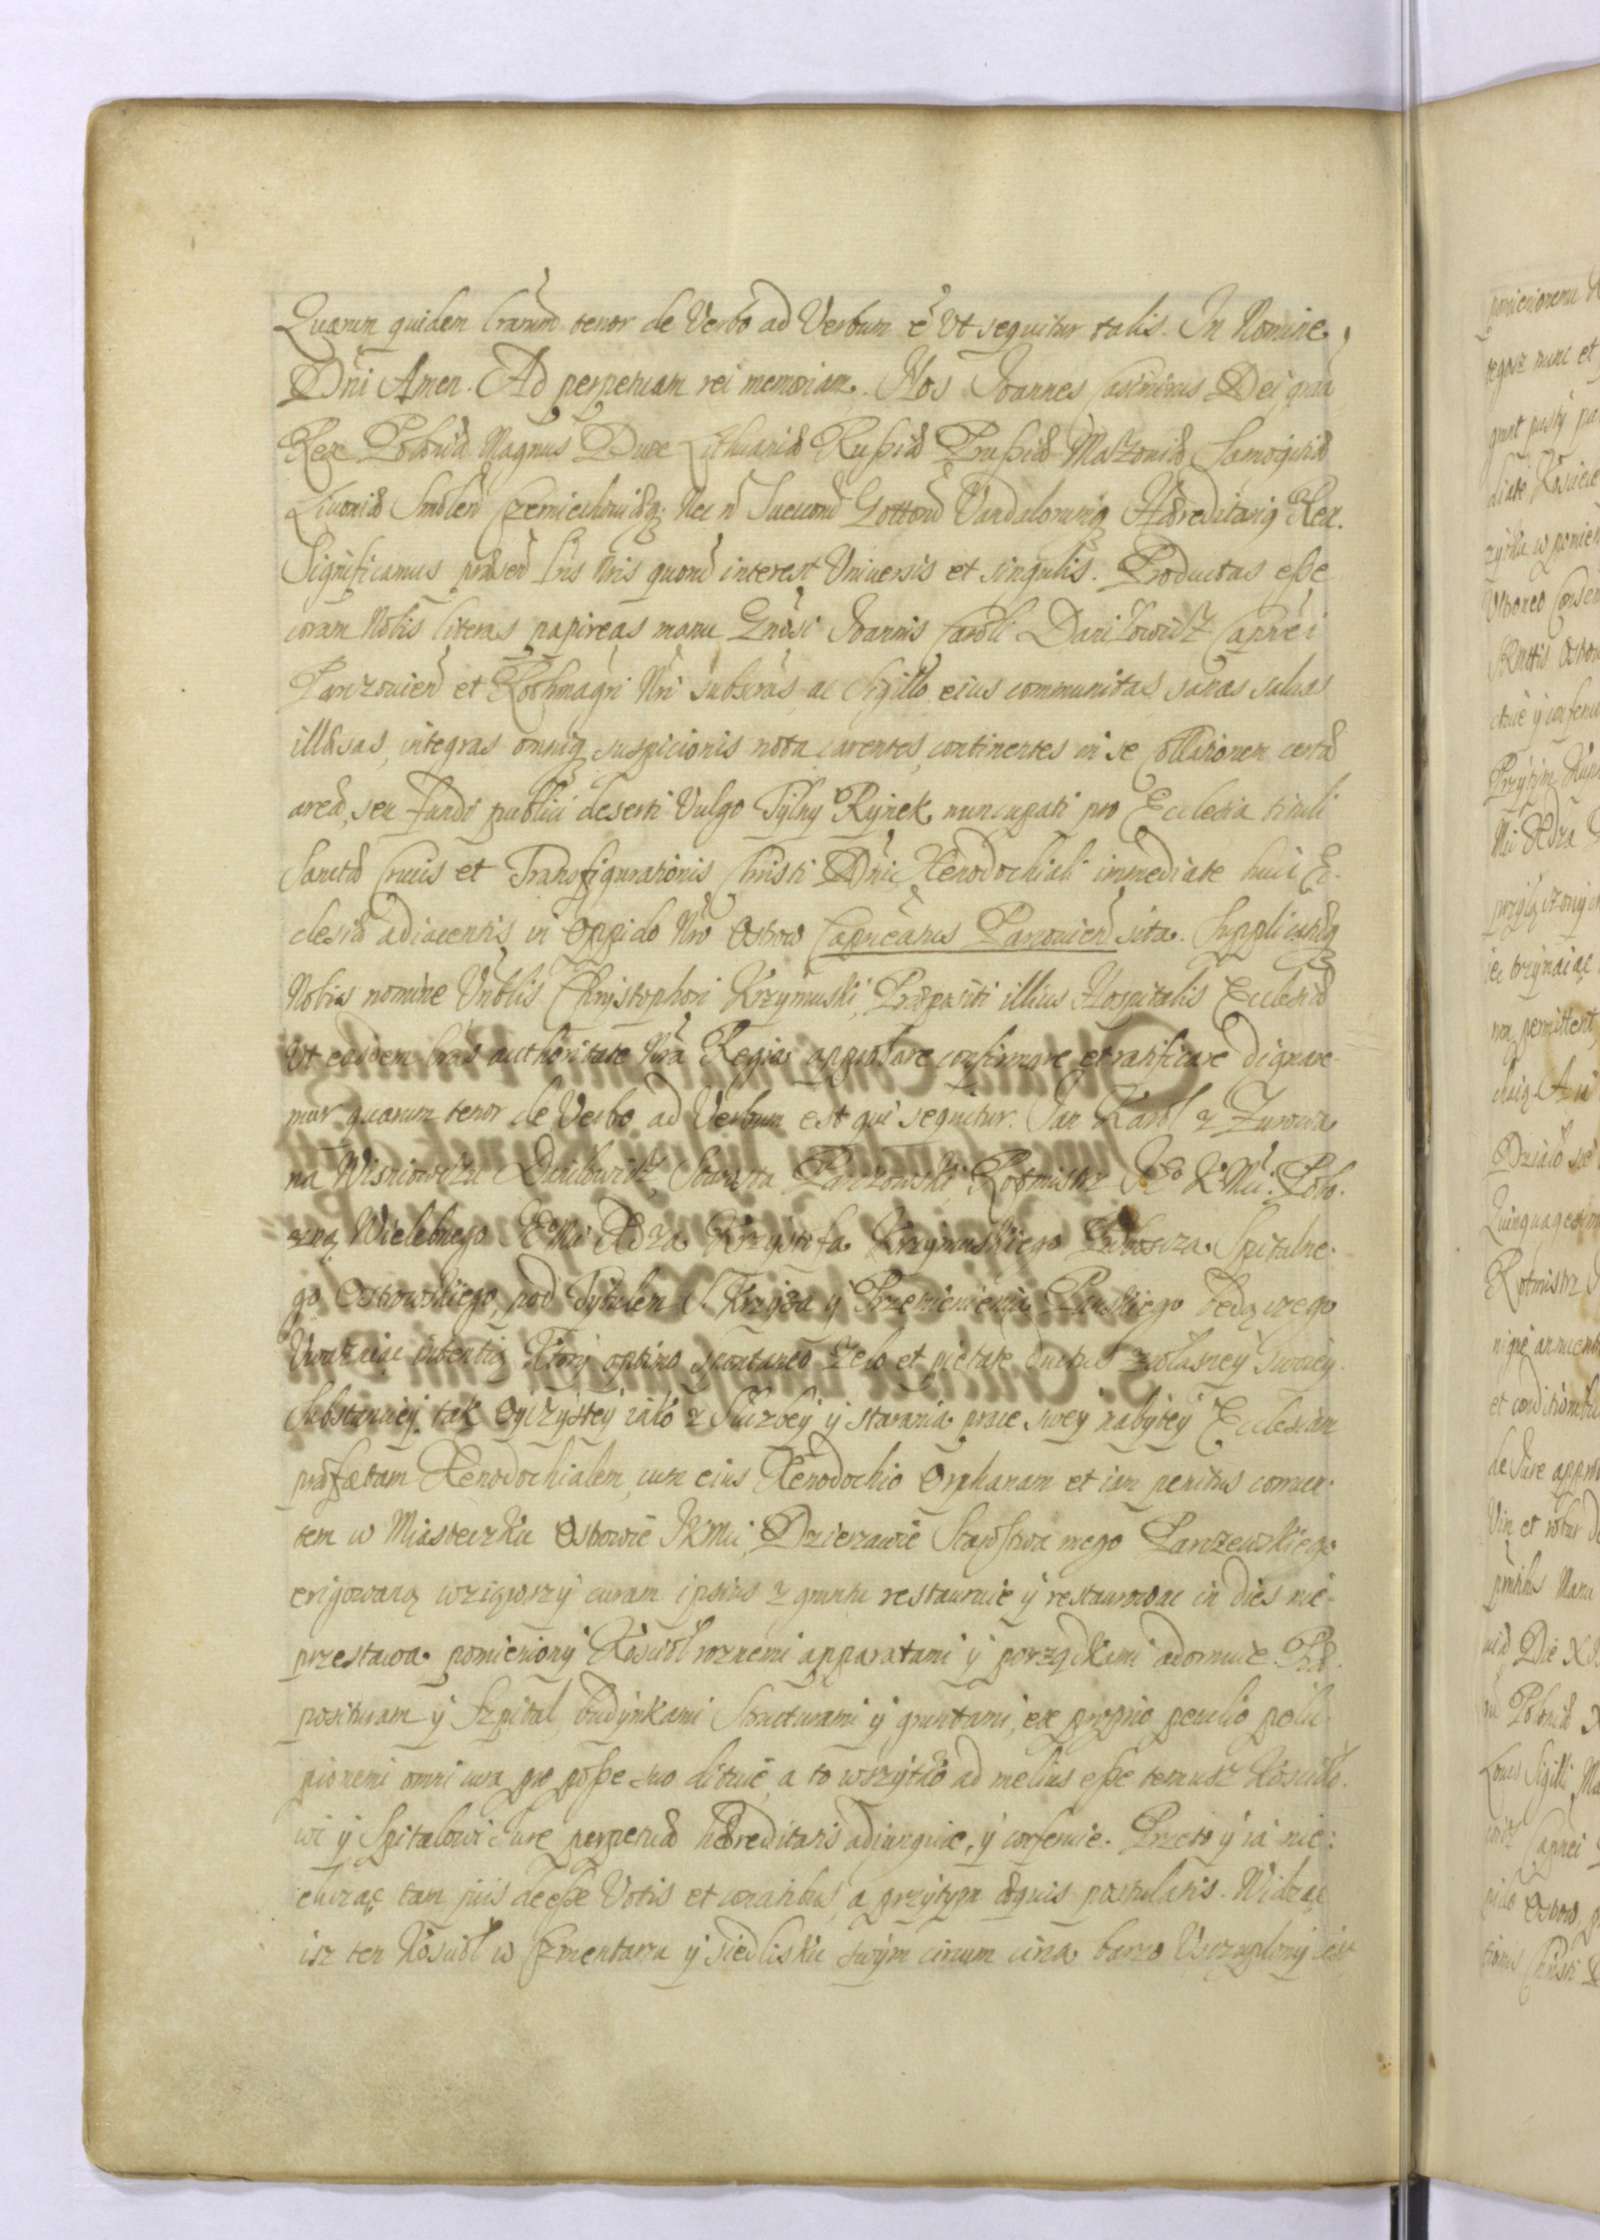 Quarum quidem lrarum tenor de Verbo ad Verbum ē Ut sequitur talis. In Nomine
Dñi Amen. Ad perpetuam rei memoriam. Nos Joannes Casimirus Dei grãa
Rex Poloniæ Magnus Dux Lithuaniæ Rußiæ Prußiæ Maſzoniæ Samogitiæ
Livoniæ Smolen Czerniechoviæq; Nec n Suecorũ Gottorũ Vandalorumq; Hæreditariq Rex.
Significamus præsen lris nris quorũ interest Universis et singulis. Productas eße
coram Nobis literas papireas manu Gnosi Joannis Caroli Daniłowicz Capnei
Parczovien et Rothmagri Nri subscras, ac Sigillo eius communitas, sanas salvas
illæsas, integras omniq; suspicionis nota carentes, continentes in se Collationem certæ
areæ, seu fundi publici deserti Vulgo Tylny Rynek nuncupati pro Ecclesia tituli
Sanctæ Crucis et Transfigurationis Christi Dñi Xenodochiali immediate huic Ec-
clesiæ adiacentis in Oppido Nro Ostrow Capneatus Parcovien sita. Supplicatũq
Nobis nomine Vnblis Christophori Krzymuski, Præpositi illius Hospitalis Ecclesiæ
Ut easdem lras authoritate Nra Regia approbare confirmare et ratificare dignare-
mur quarum tenor de Verbo ad Verbum est qui sequitur. Jan Karol z Zurowa
na Wiśniowczu Daniłowicz, Starosta Parczowski, Rotmistrz Jeo K Mci. Pobo-
zną Wielebnego Eo Mci Xdza Krzysztofa Krzymuskiego Proboszcza Szpitalne-
go Ostrowskiego, pod Tytułem S. Krzyża y Przemienienia Pańskiego będącego
Uważaiąc intentią Ktory optimo spontaneo zelo et pietate ductus z własney swoiey
Substanciey, tak oyczystey iako z Służbey y starania prace swey nabytey Ecclesiam
præfatam Xenodochialem, cum eius Xenodochio Orphanam et iam penitus corruen-
tem w Miasteczku Ostrowie JKMci, Dzierzawie Starostwa mego Parczewskiego
erigowaną wziąwszy curam ipsius z gruntu restauruie y restaurować in dies nie-
przestawa. pomieniony Kościoł roznemi apparatami y porządkami adornuie. Præ-
posituram y Szpital, budynkami Structurami y gruntami, ex proprio peculio
omni cura pro poße suo dituie, a to wszytko ad melius eße temusz Kościoło-
wi y Szpitalowi Jure perpetuo hæreditario adiunguie, y conferuie. Przeto y ia nie-
chcąc tam piis deeße Votis et conatibus, a przytym æquis postulatis. Widząc
isz ten Kościoł w Cmentarzu y siedlisku swym circum circa barzo Uszczuplony iest